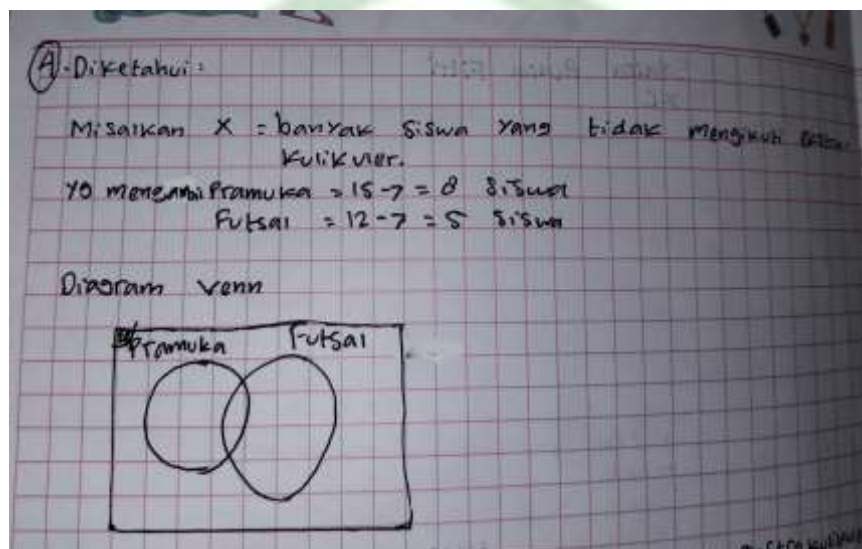 A. Diketahui :
Misalkan X = banyak siswa yang tidak mengikuti
kulikuler.
yg mengambil Pramuka = 15-7 = 8 siswa
Futsal = 12-7 = 5 siswa
Diagram venn
Pramuka Futsal